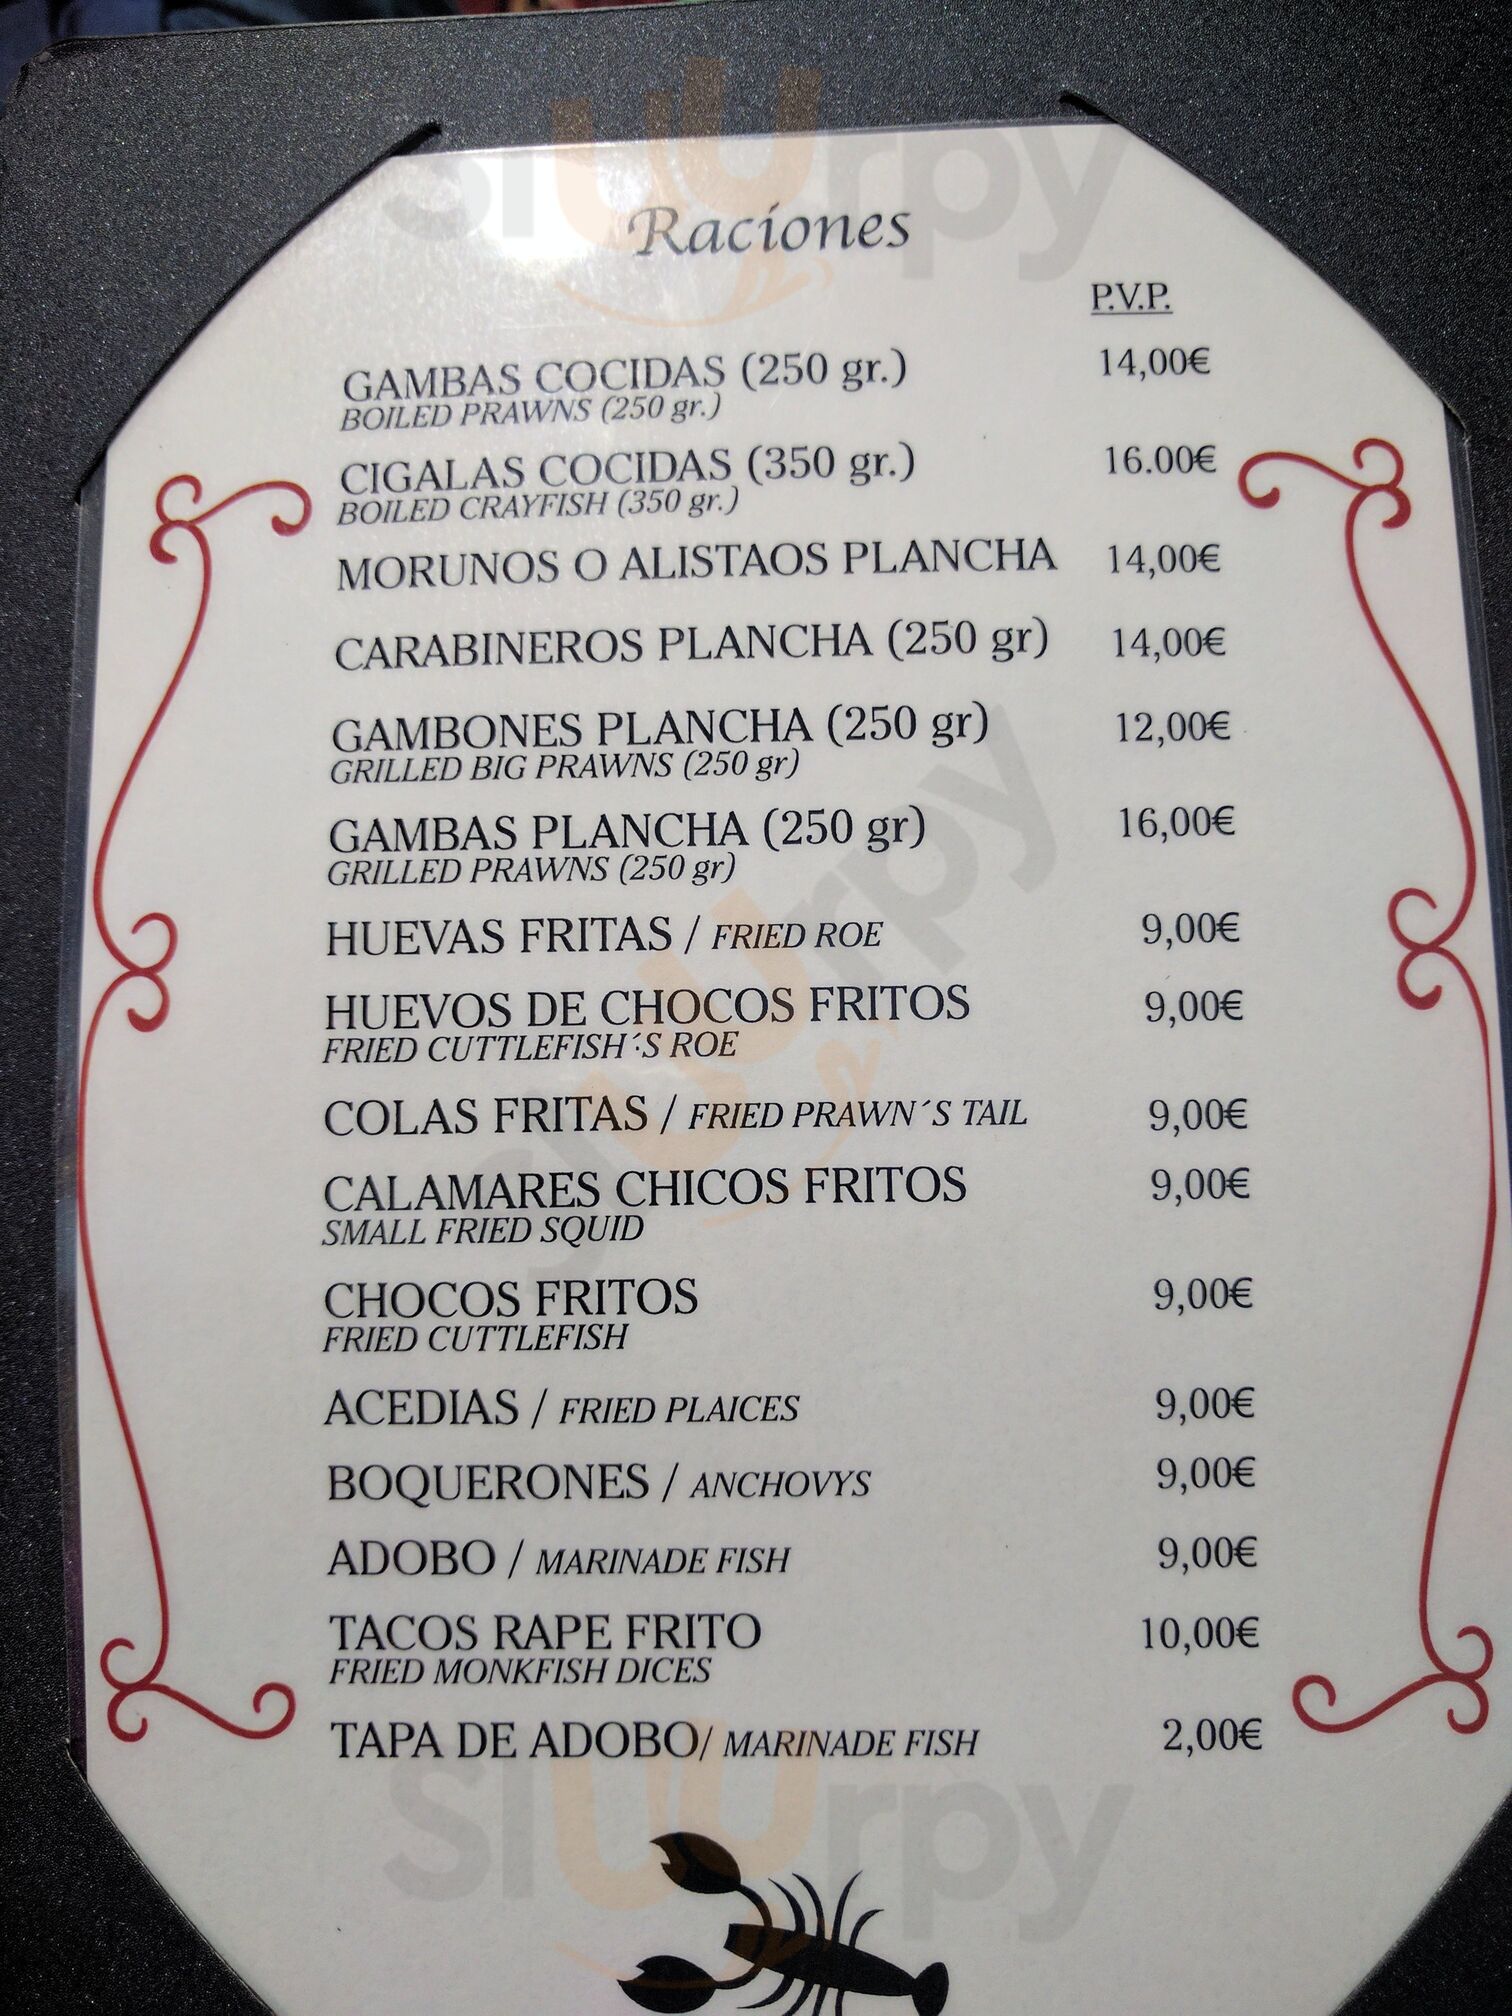 Raciones
P.V.P.
GAMBAS COCIDAS (250 gr.) 14,00€
BOILED PRAWNS (250 gr.)
CIGALAS COCIDAS (350 gr.) 16.00€
BOILED CRAYFISH (350 gr.)
MORUNOS O ALISTAOS PLANCHA 14,00€
CARABINEROS PLANCHA (250 gr) 14,00€
GAMBONES PLANCHA (250 gr) 12,00€
GRILLED BIG PRAWNS (250 gr)
GAMBAS PLANCHA (250 gr) 16,00€
GRILLED PRAWNS (250 gr)
HUEVAS FRITAS / FRIED ROE 9,00€
HUEVOS DE CHOCOS FRITOS 9,00€
FRIED CUTTLEFISH´S ROE
COLAS FRITAS / FRIED PRAWN´S TAIL 9,00€
CALAMARES CHICOS FRITOS 9,00€
SMALL FRIED SQUID
CHOCOS FRITOS 9,00€
FRIED CUTTLEFISH
ACEDIAS / FRIED PLAICES 9,00€
BOQUERONES / ANCHOVYS 9,00€
ADOBO / MARINADE FISH 9,00€
TACOS RAPE FRITO 10,00€
FRIED MONKFISH DICES
TAPA DE ADOBO/ MARINADE FISH 2,00€
sluurpy
sluurpy
sluurpy